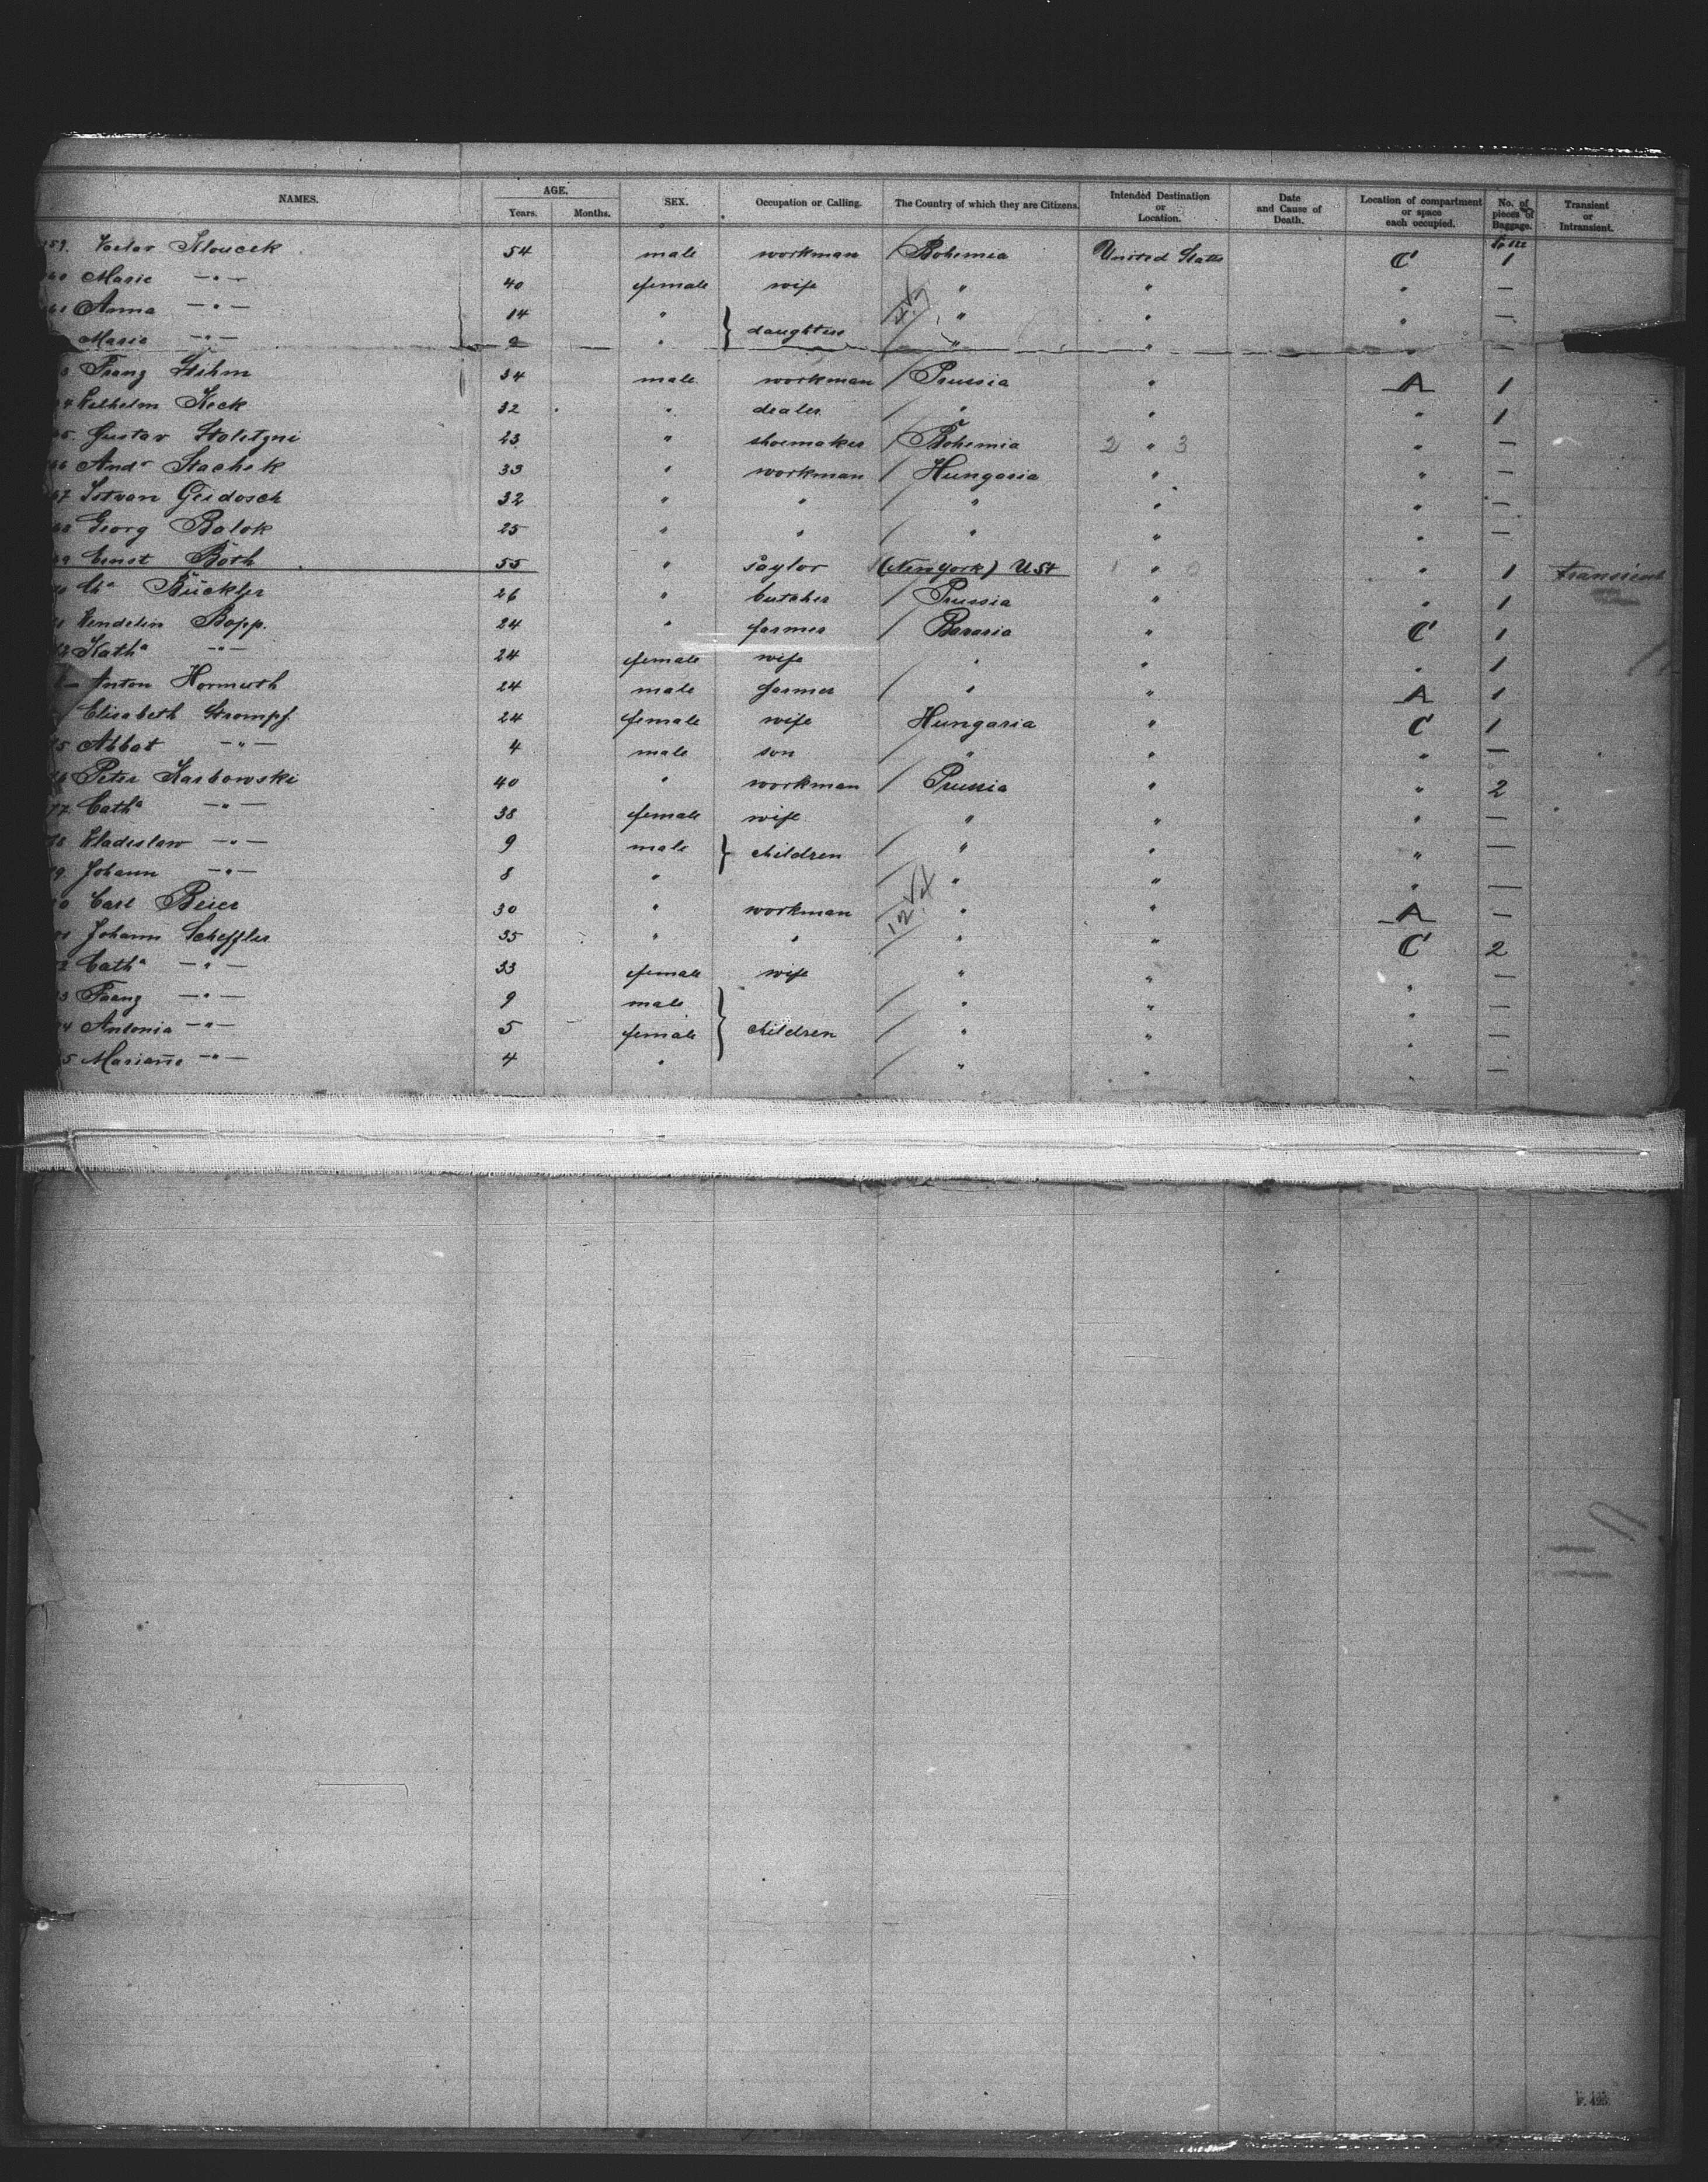 NAMES. AGE. Years. Months. SEX. Occupation or Calling. The Country of which they are Citizens. Intended Destination or Location. Date and Cause of Death. Location of compartment or space each occupied. No. of pieces of Baggage. Transient or Intransient.
59. Kloucek 54 male workman / Bohemia United States C 1
60 Marie —"— 40 female wife " " " —
61 Anna —"— 14 " } daughters / " " " —
Marie —"— 9 " / " " " —
3 Franz 34 male workman / Prussia " A 1
4 Wilhelm Keck 32 " dealer / " " " 1
65. Gustav 23 " shoemaker / Bohemia 2 " 3 " —
66 Andr Stachek 33 " workman / Hungaria " " —
67 Istvan Geidosch 32 " " / " " " —
68 Georg Balok 25 " " / " " " —
69 Ernst Both 55 " taylor (New York) U St 1 " 0 " 1 transient
70 Chr Bückler 26 " butcher / Prussia " " 1
71 Wendelin Bopp. 24 " farmer / Bavaria " C 1
72 Katha —"— 24 female wife " " " 1
Anton Hormuth 24 male farmer / " " A 1
Elisabeth Strompf 24 female wife Hungaria " C 1
75 4 male son / " " " —
76 Peter Karbowski 40 " workman / Prussia " " 2
77. Catha —"— 38 female wife " " " —
78 Wladislaw —"— 9 male } children / " " " —
79. Johann —"— 8 " / " " " —
80 Carl Beier 30 " workman / " " A —
81 Johann Scheffler 35 " " / " " C 2
82 Catha —"— 33 female wife " " " —
83 Franz —"— 9 male } children / " " " —
84 Antonia —"— 5 female / " " " —
85 Marianne —"— 4 " / " " " —